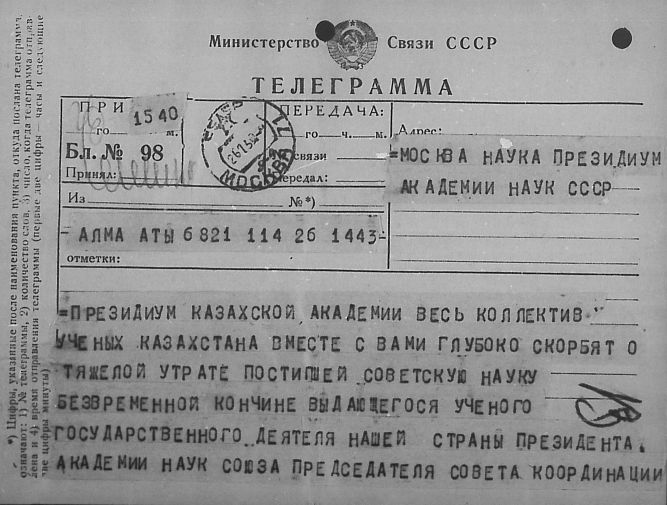 Министерство Связи СССР
ТЕЛЕГРАММА
ПРИ
15 40
го м.
Бл. № 98
Принял:
26 1 51
МОСКВА
ПЕРЕДАЧА:
го ч. м.
связи
Передал:
Адрес:
=МОСКВА НАУКА ПРЕЗИДИУМ
АКАДЕМИИ НАУК СССР
Из №*)
- АЛМА АТЫ 6821 114 26 1443-
отметки:
=ПРЕЗИДИУМ КАЗАХСКОЙ АКАДЕМИИ ВЕСЬ КОЛЛЕКТИВ
УЧЕНЫХ КАЗАХСТАНА ВМЕСТЕ С ВАМИ ГЛУБОКО СКОРБЯТ О
ТЯЖЕЛОЙ УТРАТЕ ПОСТИГШЕЙ СОВЕТСКУЮ НАУКУ
БЕЗВРЕМЕННОЙ КОНЧИНЕ ВЫДАЮЩЕГОСЯ УЧЕНОГО
ГОСУДАРСТВЕННОГО ДЕЯТЕЛЯ НАШЕЙ СТРАНЫ ПРЕЗИДЕНТА
АКАДЕМИИ НАУК СОЮЗА ПРЕДСЕДАТЕЛЯ СОВЕТА КООРДИНАЦИИ
*) Цифры, указанные после наименования пункта, откуда послана телеграмма,
означают: 1) № телеграммы, 2) количество слов, 3) число, когда телеграмма отправ-
лена и 4) время отправления телеграммы (первые две цифры — часы и следующие
две цифры минуты)